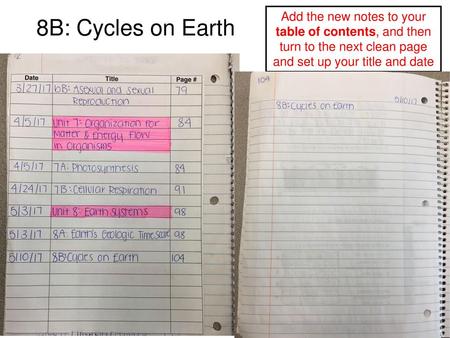 8B: Cycles on Earth
Add the new notes to your
table of contents, and then
turn to the next clean page
and set up your title and date
Date Title Page #
3/27/17 6B: Asexual and Sexual
Reproduction 79
4/5/17 Unit 7: Organization for
Matter & Energy Flow
in Organisms 84
4/5/17 7A: Photosynthesis 84
4/24/17 7B: Cellular Respiration 91
5/3/17 Unit 8: Earth Systems 98
5/3/17 8A: Earth's Geologic Timescale 98
5/10/17 8B: Cycles on Earth 104
104
8B: Cycles on Earth 5/10/17